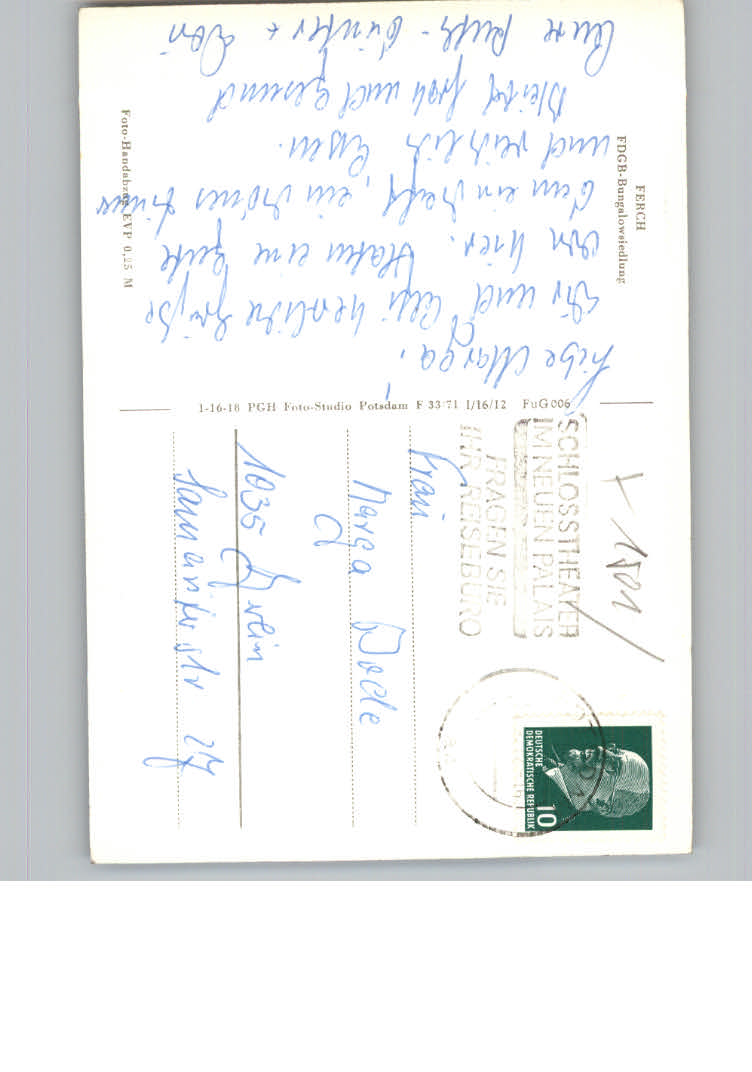 FERCH
FDGB-Bungalowsiedlung
Liebe Marga,
Dir und herzliche Grüße
von hier. Haben eine gute
ein schönes Zimmer
und reichlich Essen.
Bleibt froh und gesund
Eure Ruth - Günter +
Foto-Handabzug EVP 0,25 M
1-16-18 PGH Foto-Studio Potsdam F 33/71 I/16/12 FuG006
SCHLOSSTHEATER
IM NEUEN PALAIS
FRAGEN SIE
IHR REISEBÜRO
DEUTSCHE
DEMOKRATISCHE REPUBLIK
10
Frau
Marga Bode
1035 Berlin